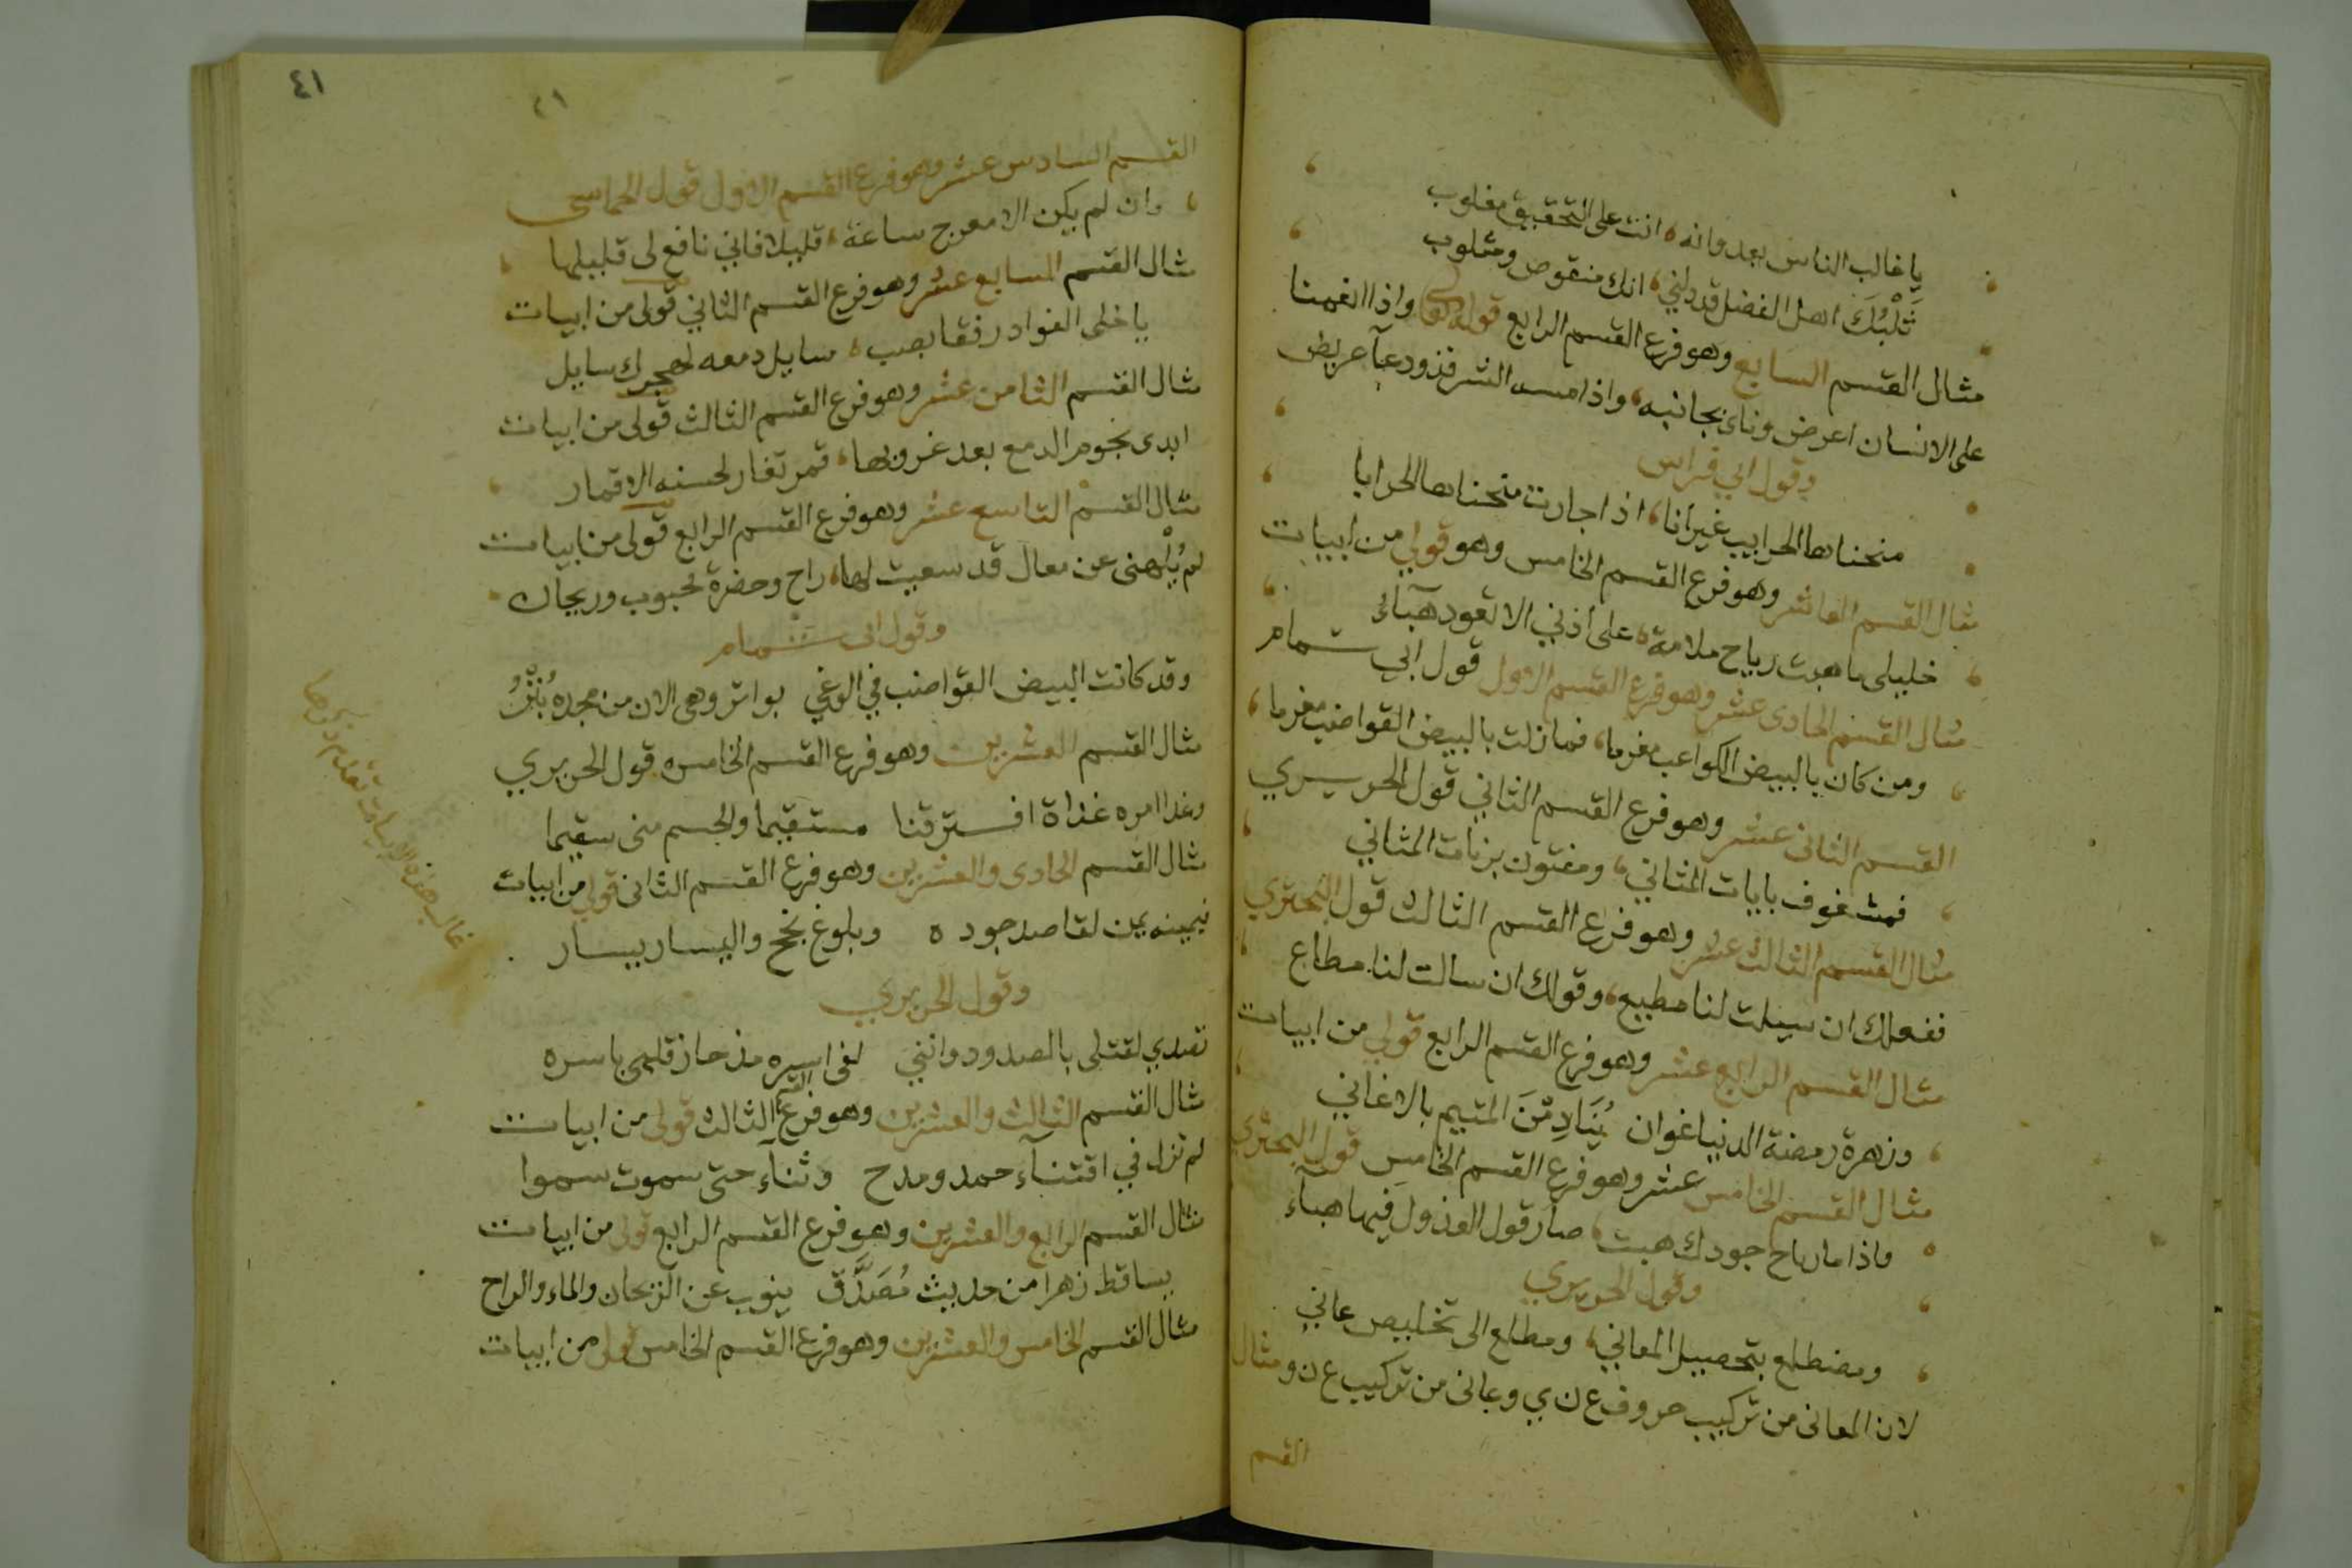 يا غالب الناس بعدوانه، انت على التحقيق مغلوب
ثَلْبُكَ اهل الفضل قد دلني، انك منقوص ومثلوب
مثال القسم السابع وهو فرع القسم الرابع قوله تعالى واذا انعمنا
على الانسان اعرض وناى بجانبه، واذا مسه الشر فذو دعآ عريض
وقول ابي فراس
منحناها الحرايب غير انا، اذا جارت منحناها الحرابا
مثال القسم العاشر وهو فرع القسم الخامس وهو قولي من ابيات
خليلى ما هبت رياح ملامة، على اذني الا تعود هبآء
مثال القسم الحادى عشر وهو فرع القسم الاول قول ابي تمام
ومن كان بالبيض الكواعب مغرما، فما زلت بالبيض القواضب مغرما
القسم الثانى عشر وهو فرع القسم الثاني قول الحريري
فمشغوف بايات المثاني، ومفتون برنات المثاني
مثال القسم الثالث عشر وهو فرع القسم الثالث قول البحتري
ففعلك ان سيلت لنا مطيع، وقولك ان سالت لنا مطاع
مثال القسم الرابع عشر وهو فرع القسم الرابع قولي من ابيات
وزهرة روضة الدنيا غوان يُنَادِمْنَ المتيم بالاغاني
مثال القسم الخامس عشر وهو فرع القسم الخامس قول البحتري
واذا ما رياح جودك هبت، صار قول العذول فيها هبآء
وقول الحريري
ومضطلع بتحصيل المعاني، ومطلع الى تخليص عاني
لان المعانى من تركيب حروف ع ن ي وعانى من تركيب ع ن و مثال
القسم
٤١
٤١
القسم السادس عشر وهو فرع القسم الاول قول الحماسى
وان لم يكن الا معرج ساعة، قليلا فاني نافع لى قليلها
مثال القسم السابع عشر وهو فرع القسم الثاني قولى من ابيات
يا خلى الفواد رفقا بصب، سايل دمعه لهجرك سايل
مثال القسم الثامن عشر وهو فرع القسم الثالث قولى من ابيات
ابدى نجوم الدمع بعد غروبها، قمر تغار لحسنه الاقمار
مثال القسم التاسع عشر وهو فرع القسم الرابع قولى من ابيات
لم يُلْهنى عن معال قد سعيت لها، راح وحضرة محبوب وريحان
وقول ابى تمام
وقد كانت البيض القواضب في الوغي بواتر وهى الان من بعده بُتْرُ
مثال القسم العشرين وهو فرع القسم الخامس قول الحريري
وغدا امره غداة افترقنا مستقيما والجسم منى سقيما
مثال القسم الحادى والعشرين وهو فرع القسم الثانى قولي من ابيات
فيمينه يمن لقاصد جوده وبلوغ نجح واليسار يسار
وقول الحريري
تصدي لقتلى بالصدود وانني لفى اسره مذ حاز قلبى باسره
مثال القسم الثالث والعشرين وهو فرع القسم الثالث قولى من ابيات
لم تزل في اقتنآء حمد ومدح وثنآء حتى سموت سموا
مثال القسم الرابع والعشرين وهو فرع القسم الرابع قولى من ابيات
يساقط زهرا من حديث مُصَدَّق ينوب عن الريحان والماء والراح
مثال القسم الخامس والعشرين وهو فرع القسم الخامس قولى من ابيات
غالب هذه الابيات تقدم ذكرها